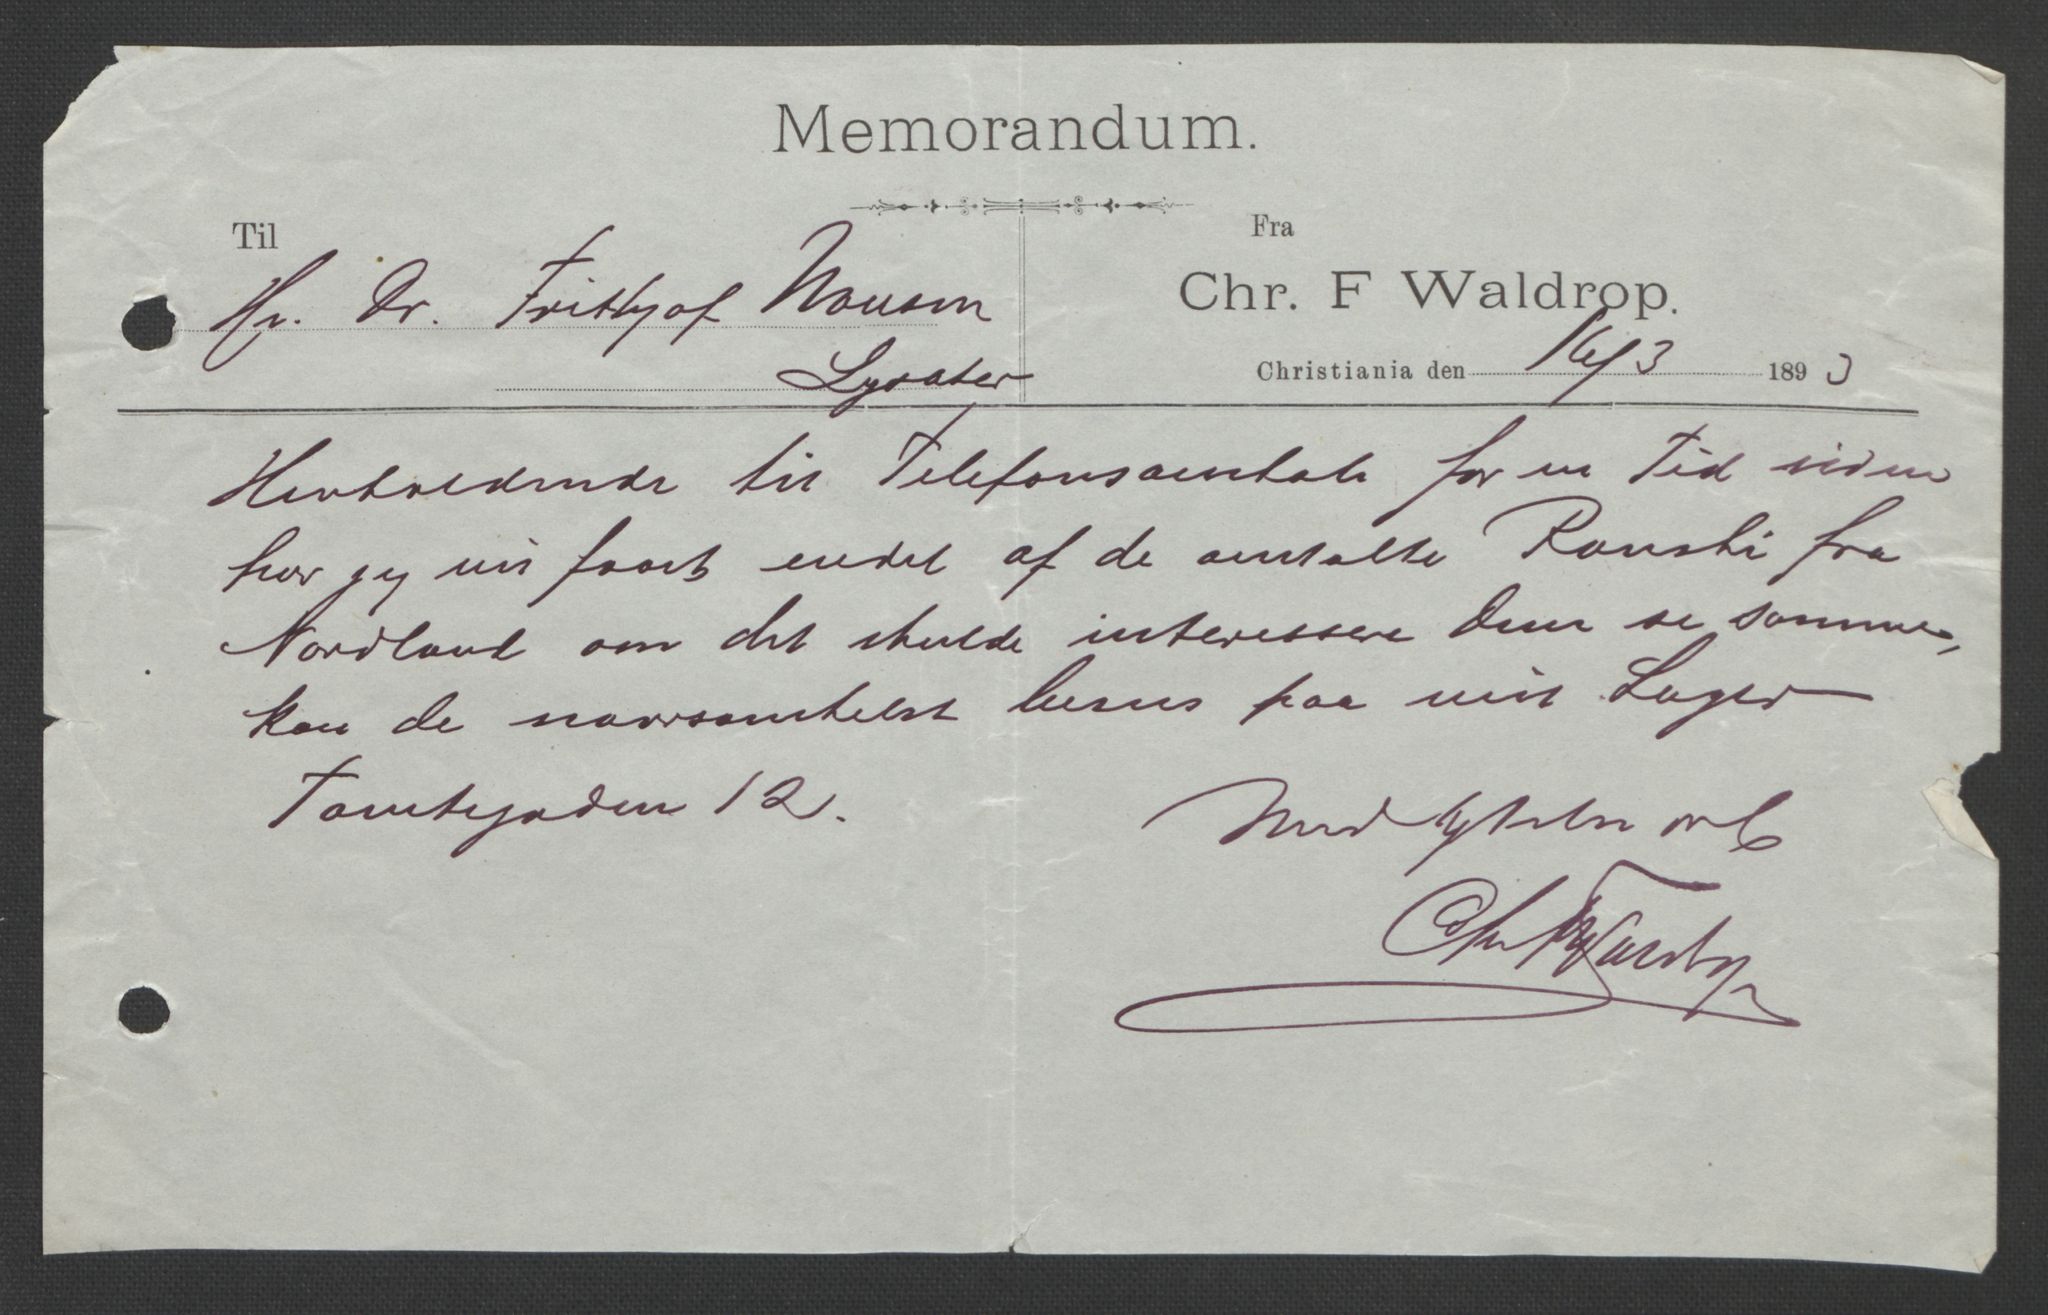 Memorandum.
Til
Hr. Dr. Frithjof Nansen
Lysaker
Fra
Chr. F Waldrop.
Christiania den 16/3 1893
Henholdende til Telefonsamtale for en Tid siden
har jeg nu faaet endel af de omtalte Komski fra
Nordland om det skulde interessere Dem se samme,
kan de naarsomhelst beses paa mit Lager
Tomtegaden 12.
Med Agtelse
Chr F Waldrop